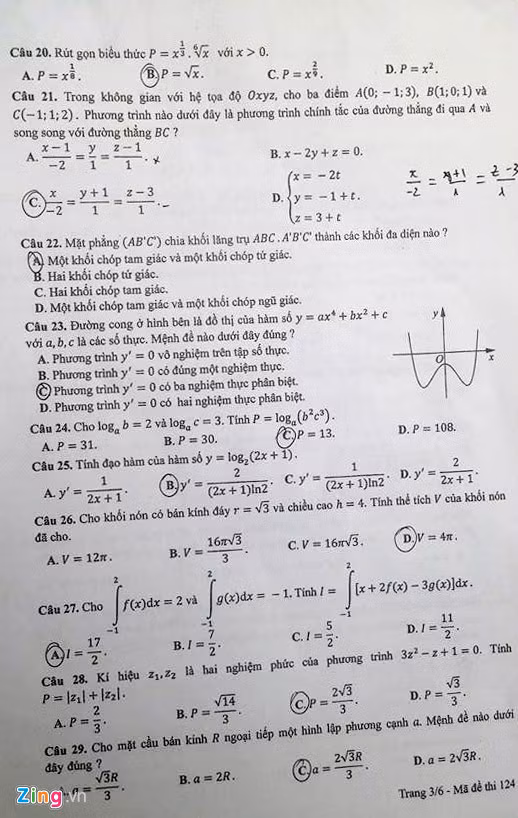 Câu 20. Rút gọn biểu thức P = x^{1/3}.⁶√x với x > 0.
A. P = x^{1/8}. B. P = √x. C. P = x^{2/9}. D. P = x².
Câu 21. Trong không gian với hệ tọa độ Oxyz, cho ba điểm A(0; − 1; 3), B(1; 0; 1) và
C(−1; 1; 2). Phương trình nào dưới đây là phương trình chính tắc của đường thẳng đi qua A và
song song với đường thẳng BC ?
A. (x − 1)/−2 = y/1 = (z − 1)/1. B. x − 2y + z = 0.
C. x/−2 = (y + 1)/1 = (z − 3)/1. D. {x = − 2t
y = −1 + t.
z = 3 + t
x/-2 = y+1/1 = z-3/1
Câu 22. Mặt phẳng (AB'C') chia khối lăng trụ ABC.A'B'C' thành các khối đa diện nào ?
A. Một khối chóp tam giác và một khối chóp tứ giác.
B. Hai khối chóp tứ giác.
C. Hai khối chóp tam giác.
D. Một khối chóp tam giác và một khối chóp ngũ giác.
Câu 23. Đường cong ở hình bên là đồ thị của hàm số y = ax⁴ + bx² + c
với a, b, c là các số thực. Mệnh đề nào dưới đây đúng ?
A. Phương trình y' = 0 vô nghiệm trên tập số thực.
B. Phương trình y' = 0 có đúng một nghiệm thực.
C. Phương trình y' = 0 có ba nghiệm thực phân biệt.
D. Phương trình y' = 0 có hai nghiệm thực phân biệt.
y
O
x
Câu 24. Cho logₐ b = 2 và logₐ c = 3. Tính P = logₐ(b²c³).
A. P = 31. B. P = 30. C. P = 13. D. P = 108.
Câu 25. Tính đạo hàm của hàm số y = log₂(2x + 1).
A. y' = 1/(2x + 1). B. y' = 2/((2x + 1)ln2). C. y' = 1/((2x + 1)ln2). D. y' = 2/(2x + 1).
Câu 26. Cho khối nón có bán kính đáy r = √3 và chiều cao h = 4. Tính thể tích V của khối nón
đã cho.
A. V = 12π. B. V = 16π√3/3. C. V = 16π√3. D. V = 4π.
Câu 27. Cho ∫_{−1}^{2} f(x)dx = 2 và ∫_{−1}^{2} g(x)dx = − 1. Tính I = ∫_{−1}^{2} [x + 2f(x) − 3g(x)]dx.
A. I = 17/2. B. I = 7/2. C. I = 5/2. D. I = 11/2.
Câu 28. Kí hiệu z₁, z₂ là hai nghiệm phức của phương trình 3z² − z + 1 = 0. Tính
P = |z₁| + |z₂|.
A. P = 2/3. B. P = √14/3. C. P = 2√3/3. D. P = √3/3.
Câu 29. Cho mặt cầu bán kính R ngoại tiếp một hình lập phương cạnh a. Mệnh đề nào dưới
đây đúng ?
a = √3R/3. B. a = 2R. C. a = 2√3R/3. D. a = 2√3R.
Zing.vn
Trang 3/6 - Mã đề thi 124